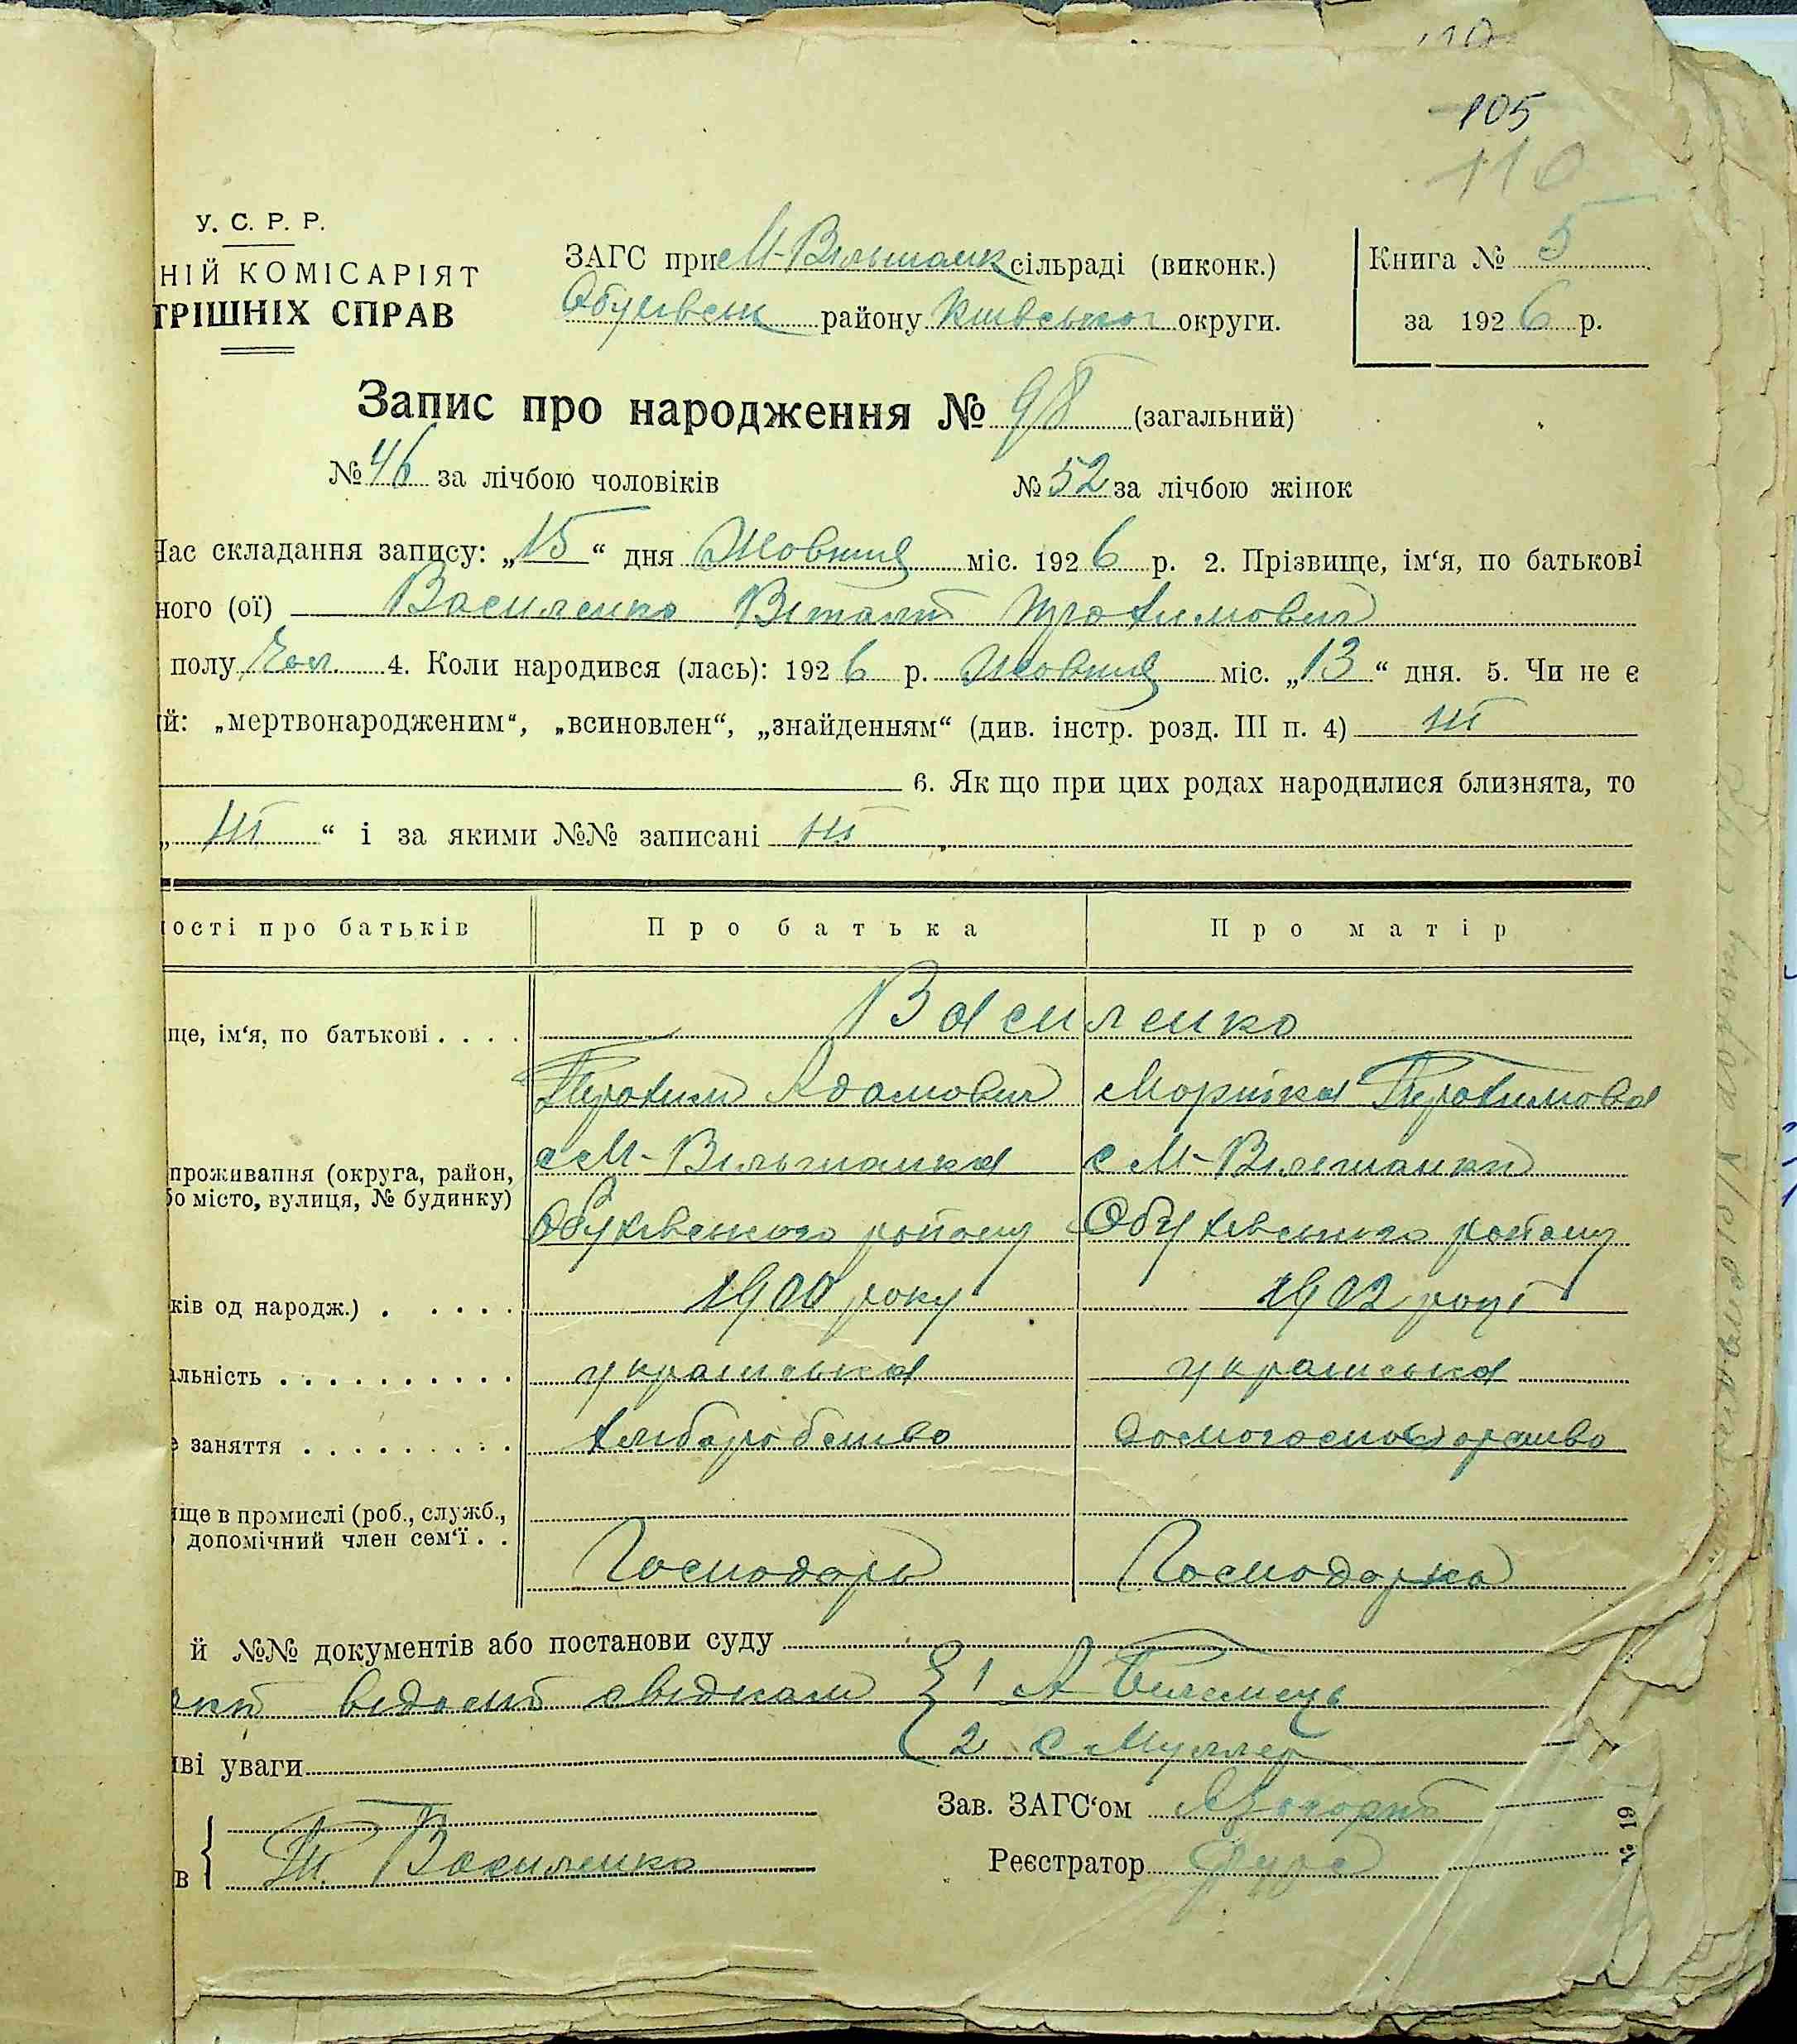 110
105
110
У. С. Р. Р.
НІЙ КОМІСАРІЯТ
ТРІШНІХ СПРАВ
ЗАГС при М-Вільшанк сільраді (виконк.)
Обухівськ району Київського округи.
Книга № 5
за 1926 р.
Запис про народження № 98 (загальний)
№ 46 за лічбою чоловіків № 52 за лічбою жінок
Час складання запису: „15“ дня Жовтня міс. 1926 р. 2. Прізвище, ім‘я, по батькові
ного (ої) Василенко Віталій Трохимович
полу Чол 4. Коли народився (лась): 1926 р. Жовтня міс. „13“ дня. 5. Чи не є
ий: „мертвонародженим“, „всиновлен“, „знайденням“ (див. інстр. розд. III п. 4) ні
6. Як що при цих родах народилися близнята, то
„ ні “ і за якими №№ записані ні
ості про батьків Про батька Про матір
Василенко
ще, ім‘я, по батькові . . . .
Трохим Адамович Марийка Трохимова
с М-Вільшанка с М-Вільшанки
проживання (округа, район,
бо місто, вулиця, № будинку)
Обухівського району Обухівського району
ків од народж.) . . . . . 1900 року 1902 році
альність . . . . . . . . . . українська українська
е заняття . . . . . . . . . хліборобство домогосподарство
ище в промислі (роб., служб.,
допомічний член сем‘ї . .
Господарь Господарка
й №№ документів або постанови суду
відомі свідками { 1 А
2 С Муллер
иві уваги
Зав. ЗАГС‘ом
в { Т. Василенко
Реєстратор
№ 19